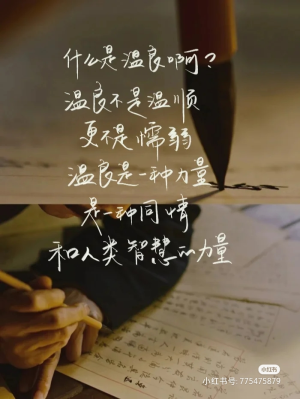 什么是温良啊?
温良不是温顺
更不是懦弱
温良是一种力量
是一种同情
和人类智慧的力量
小红书
小红书号: 775475879